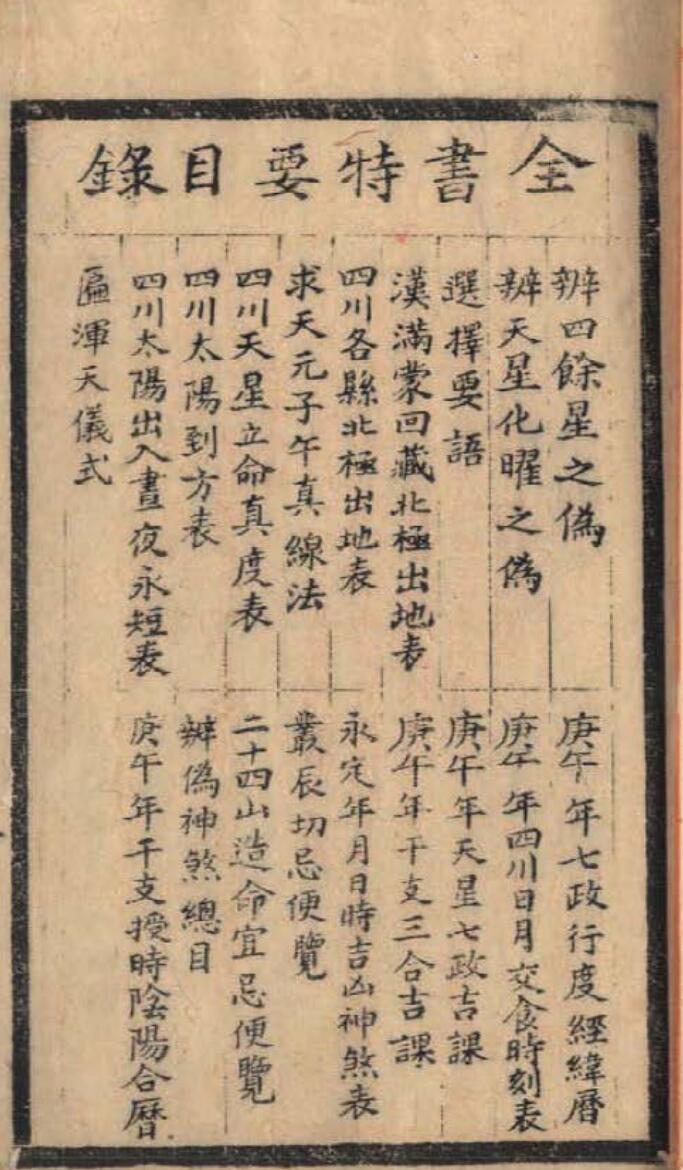 全書特要目錄
辨四餘星之偽
辨天星化曜之偽
選擇要語
漢滿蒙回藏北極出地表
四川各縣北極出地表
求天元子午真線法
四川天星立命真度表
四川太陽到方表
四川太陽出入晝夜永短表
匾渾天儀式
庚午年七政行度經緯曆
庚午年四川日月交食時刻表
庚午年天星七政吉課
庚午年干支三合吉課
永定年月日時吉凶神煞表
叢辰切忌便覽
二十四山造命宜忌便覽
辨偽神煞總目
庚午年干支授時陰陽合曆